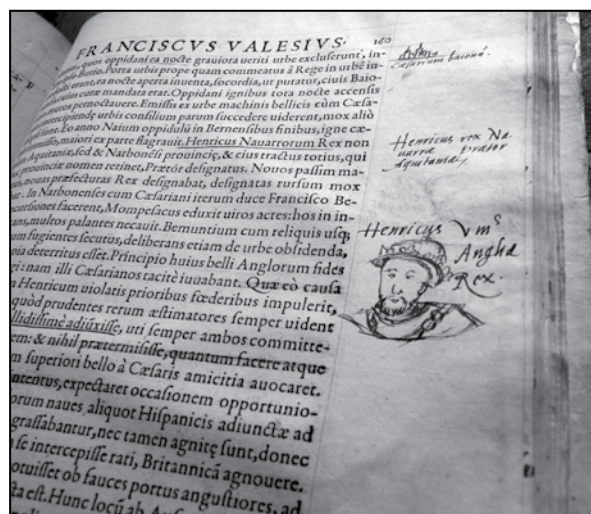 FRANCISCVS VALESIVS. 160
quos oppidani ea nocte grauiora ueriti urbe excluserunt, in-
Borio. Porta urbis prope quam commeatus à Rege in urbē in-
erant, ea nocte aperta inuenta, socordia, ut putatur, ciuis Baio-
curæ mandata erat. Oppidani ignibus tota nocte accensis
pernoctauere. Emissis ex urbe machinis bellicis cùm Cæsa-
intercipiendę urbis consilium parum succedere uiderent, mox aliò
sunt. Eo anno Naium oppidulū in Bernensibus finibus, igne cæ-
maiori ex parte flagrauit. Henricus Nauarrorum Rex non
Aquitaniæ, sed & Narbonēsis prouinciæ, & eius tractus totius, qui
prouinciæ nomen retinet, Prætor designatus. Nouos passim ma-
nouas præfecturas Rex designabat, designatas rursum mox
In Narbonenses cum Cæsariani iterum duce Francisco Be-
facerent, Mompesacus eduxit uiros acres: hos in in-
multos palantes necauit. Bemuntium cum reliquis usq;
fugientes secutus, deliberans etiam de urbe obsidenda,
deterritus esset. Principio huius belli Anglorum fides
nam illi Cæsarianos tacitè iuuabant. Quæ eò causa
Henricum uiolatis prioribus fœderibus impulerit,
quòd prudentes rerum æstimatores semper uident
adiuxisse, uti semper ambos committe-
& nihil prætermisisse, quantum facere atque
superiori bello à Cæsaris amicitia auocaret.
expectaret occasionem opportunio-
naues aliquot Hispanicis adiunctæ ad
grassabantur, nec tamen agnitę sunt, donec
se intercepisse rati, Britannicā agnouere.
ob fauces portus angustiores, ad
est. Hunc locū ab
Henricus rex Na
uarræ prætor
Aquitaniæ
Henricus Vmˢ
Angliæ
Rex.